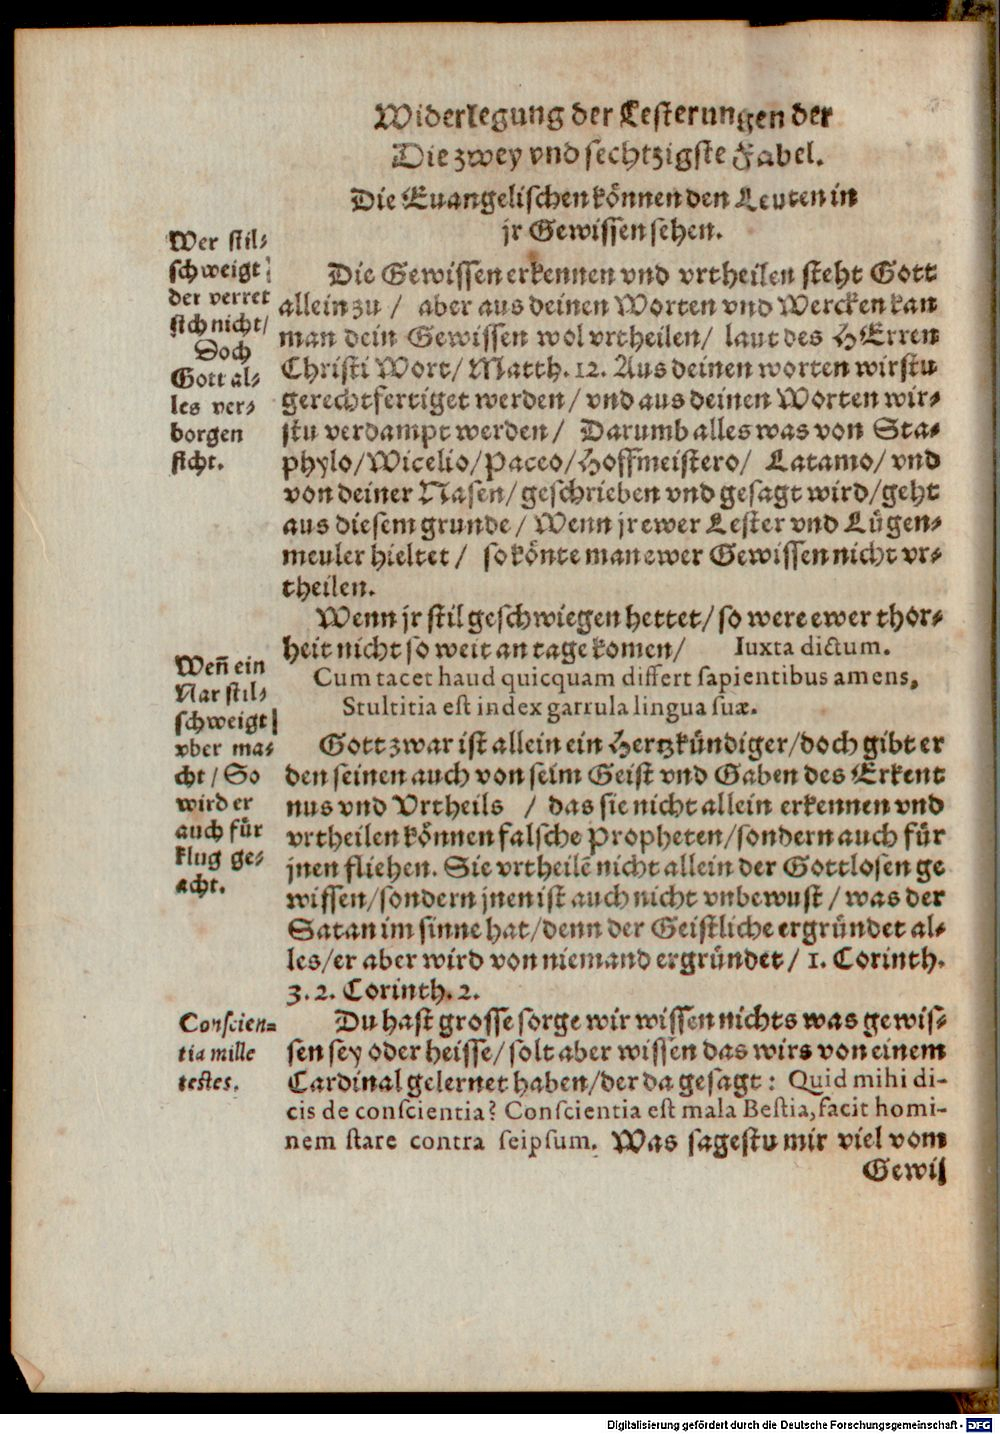 Widerlegung der Lesterungen der
Die zwey vnd sechtzigste Fabel.
Die Euangelischen können den Leuten in
jr Gewissen sehen.
Wer stil-
schweigt
der verret
sich nicht/
Doch
Gott al-
les ver-
borgen
sicht.
Die Gewissen erkennen vnd vrtheilen steht Gott
allein zu / aber aus deinen Worten vnd Wercken kan
man dein Gewissen wol vrtheilen/ laut des HErren
Christi Wort/ Matth. 12. Aus deinen worten wirstu
gerechtfertiget werden/ vnd aus deinen Worten wir-
stu verdampt werden/ Darumb alles was von Sta-
phylo/ Wicelio/ Paceo/ Hoffmeistero/ Latamo/ vnd
von deiner Nasen/ geschrieben vnd gesagt wird/ geht
aus diesem grunde/ Wenn jr ewer Lester vnd Lügen-
meuler hieltet/ so könte man ewer Gewissen nicht vr-
theilen.
Wenn jr stil geschwiegen hettet/ so were ewer thor-
heit nicht so weit an tage komen/ Iuxta dictum.
Cum tacet haud quicquam differt sapientibus amens,
Stultitia est index garrula lingua suæ.
Weñ ein
Nar stil-
schweigt
vber ma-
cht / So
wird er
auch für
klug ge-
acht.
Gott zwar ist allein ein Hertzkündiger/ doch gibt er
den seinen auch von seim Geist vnd Gaben des Erkent
nus vnd Vrtheils / das sie nicht allein erkennen vnd
vrtheilen können falsche Propheten/ sondern auch für
jnen fliehen. Sie vrtheilē nicht allein der Gottlosen ge
wissen/ sondern jnen ist auch nicht vnbewust / was der
Satan im sinne hat/ denn der Geistliche ergründet al-
les/ er aber wird von niemand ergründet/ 1. Corinth.
3. 2. Corinth. 2.
Conscien-
tia mille
testes.
Du hast grosse sorge wir wissen nichts was gewis-
sen sey oder heisse/ solt aber wissen das wirs von einem
Cardinal gelernet haben/ der da gesagt: Quid mihi di-
cis de conscientia? Conscientia est mala Bestia, facit homi-
nem stare contra seipsum. Was sagestu mir viel vom
Gewis
Digitalisierung gefördert durch die Deutsche Forschungsgemeinschaft - DFG